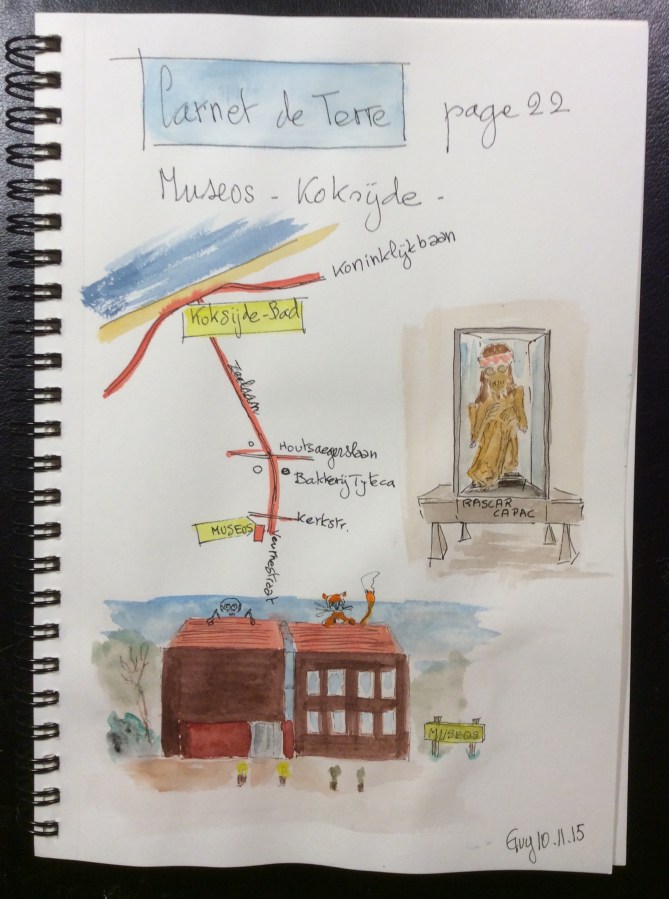 Carnet de Terre
page 22
Museos - Koksijde -
Koninklijkbaan
Koksijde-Bad
Zeelaan
Houtsaegerslaan
Bakkerij Tyteca
Kerkstr.
MUSEOS
Veurnestraat
RASCAR
CAPAC
MUSEOS
Guy 10.11.15